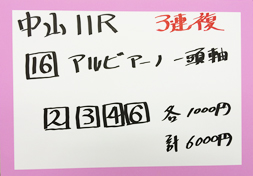 中山11R 3連複
16 アルビアーノ 一頭軸
2 3 4 6 各1000円
計6000円